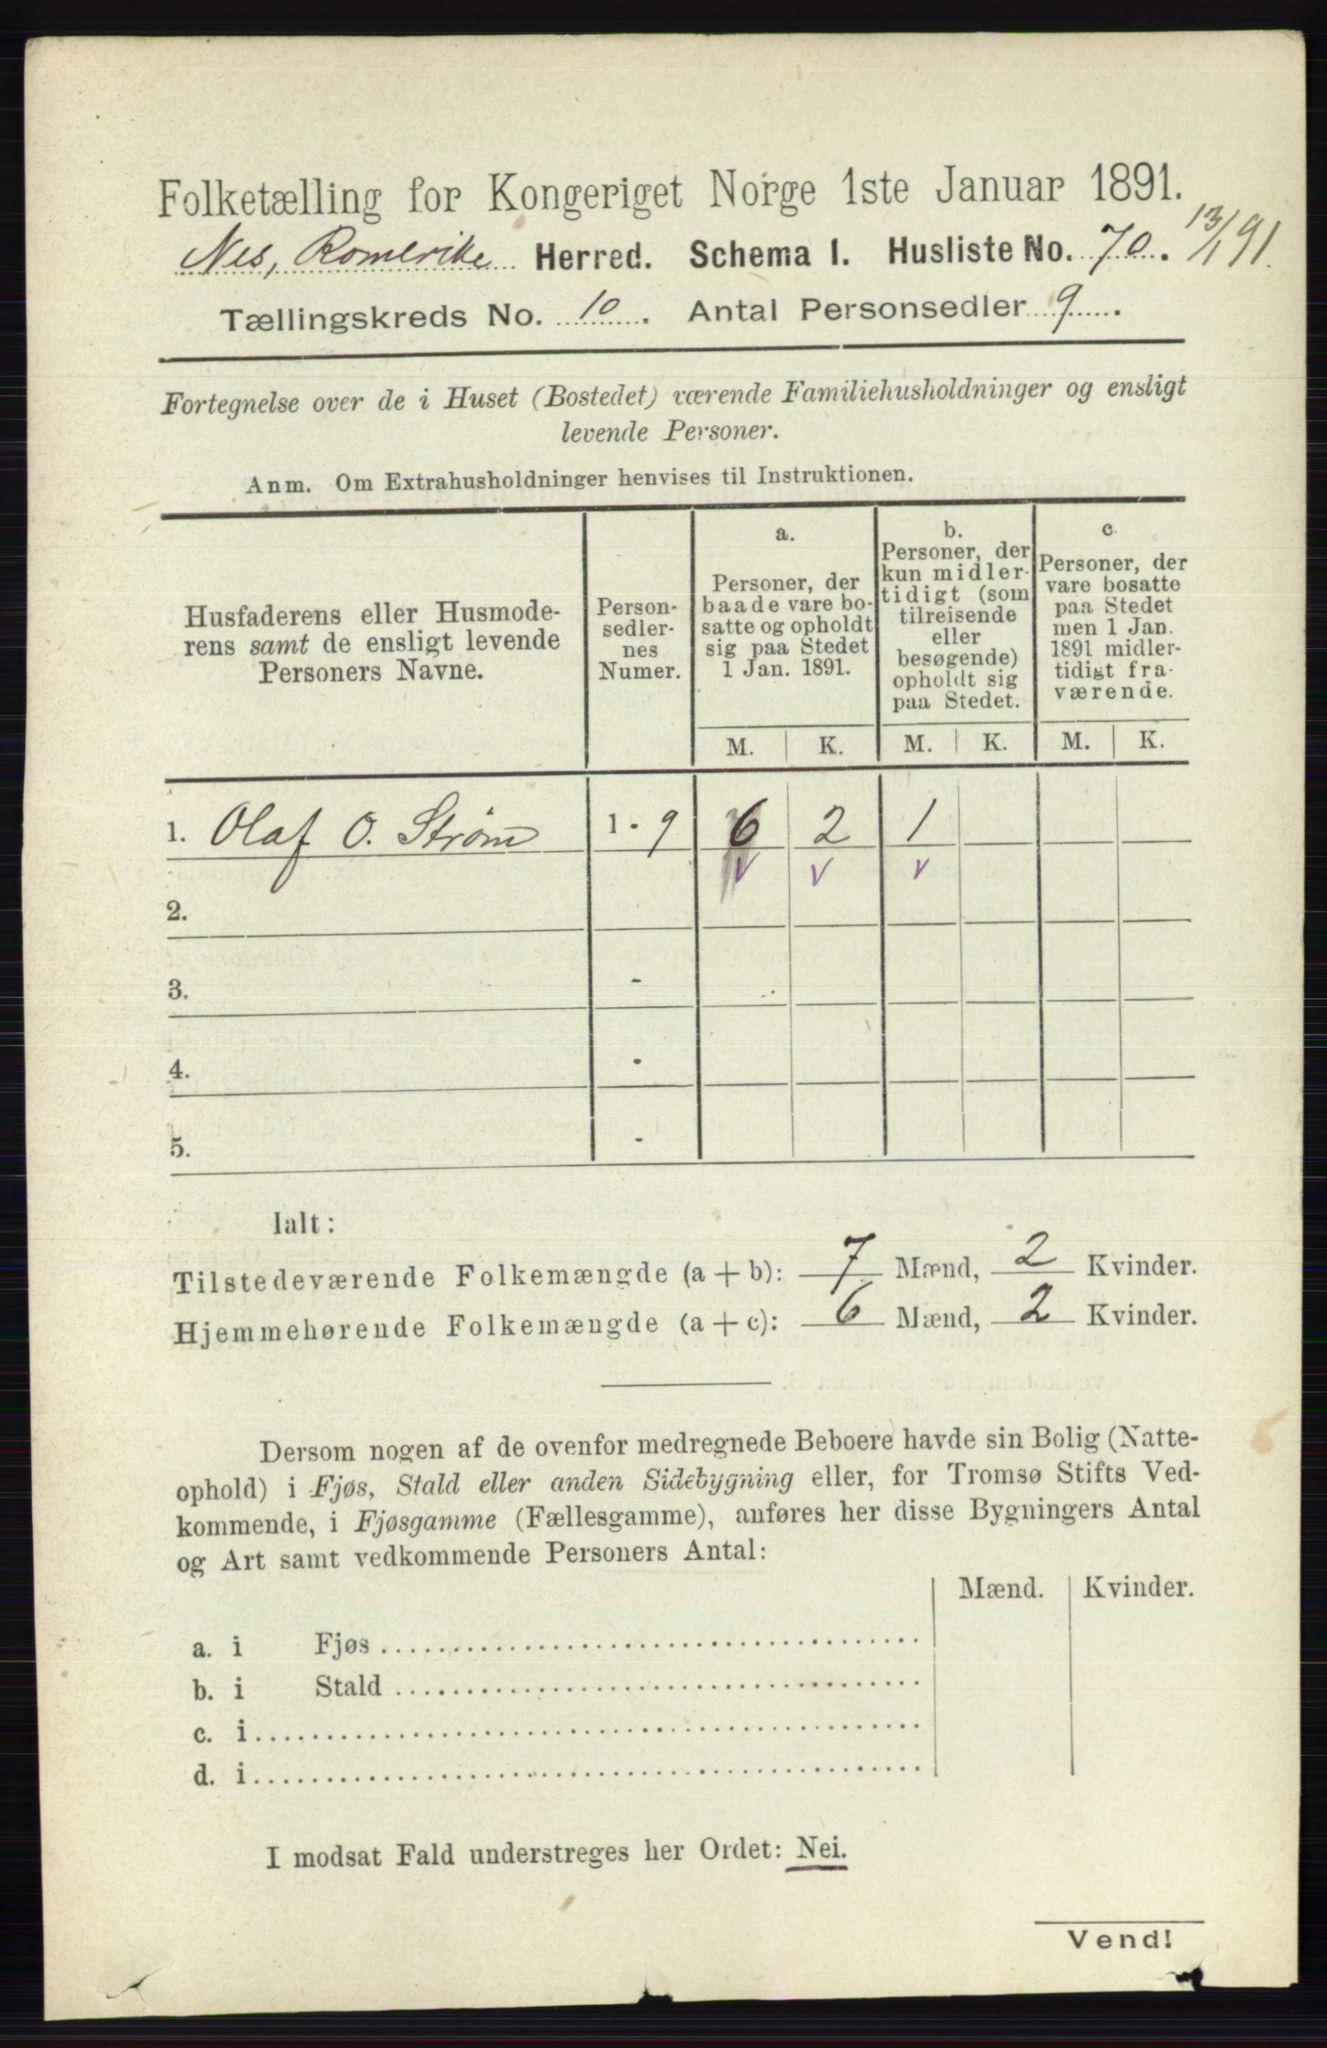 Folketælling for Kongeriget Norge 1ste Januar 1891.
Nes, Romerike Herred. Schema 1. Husliste No. 70. 13/1 91.
Tællingskreds No. 10. Antal Personsedler 9.
Fortegnelse over de i Huset (Bostedet) værende Familiehusholdninger og ensligt
levende Personer.
Anm. Om Extrahusholdninger henvises til Instruktionen.
Husfaderens eller Husmode-
rens samt de ensligt levende
Personers Navne.
Person-
sedler-
nes
Numer.
a.
Personer, der
baade vare bo-
satte og opholdt
sig paa Stedet
1 Jan. 1891.
b.
Personer, der
kun midler-
tidigt (som
tilreisende
eller
besøgende)
opholdt sig
paa Stedet.
c.
Personer, der
vare bosatte
paa Stedet
men 1 Jan.
1891 midler-
tidigt fra-
værende.
M. K. M. K. M. K.
1. Olaf O. Strøm 1 - 9 6 2 1
v v v
2.
3. -
4. -
5. -
Ialt:
Tilstedeværende Folkemængde (a + b): 7 Mænd, 2 Kvinder.
Hjemmehørende Folkemængde (a + c): 6 Mænd, 2 Kvinder.
Dersom nogen af de ovenfor medregnede Beboere havde sin Bolig (Natte-
ophold) i Fjøs, Stald eller anden Sidebygning eller, for Tromsø Stifts Ved-
kommende, i Fjøsgamme (Fællesgamme), anføres her disse Bygningers Antal
og Art samt vedkommende Personers Antal:
Mænd. Kvinder.
a. i Fjøs
b. i Stald
c. i
d. i
I modsat Fald understreges her Ordet: Nei.
Vend!